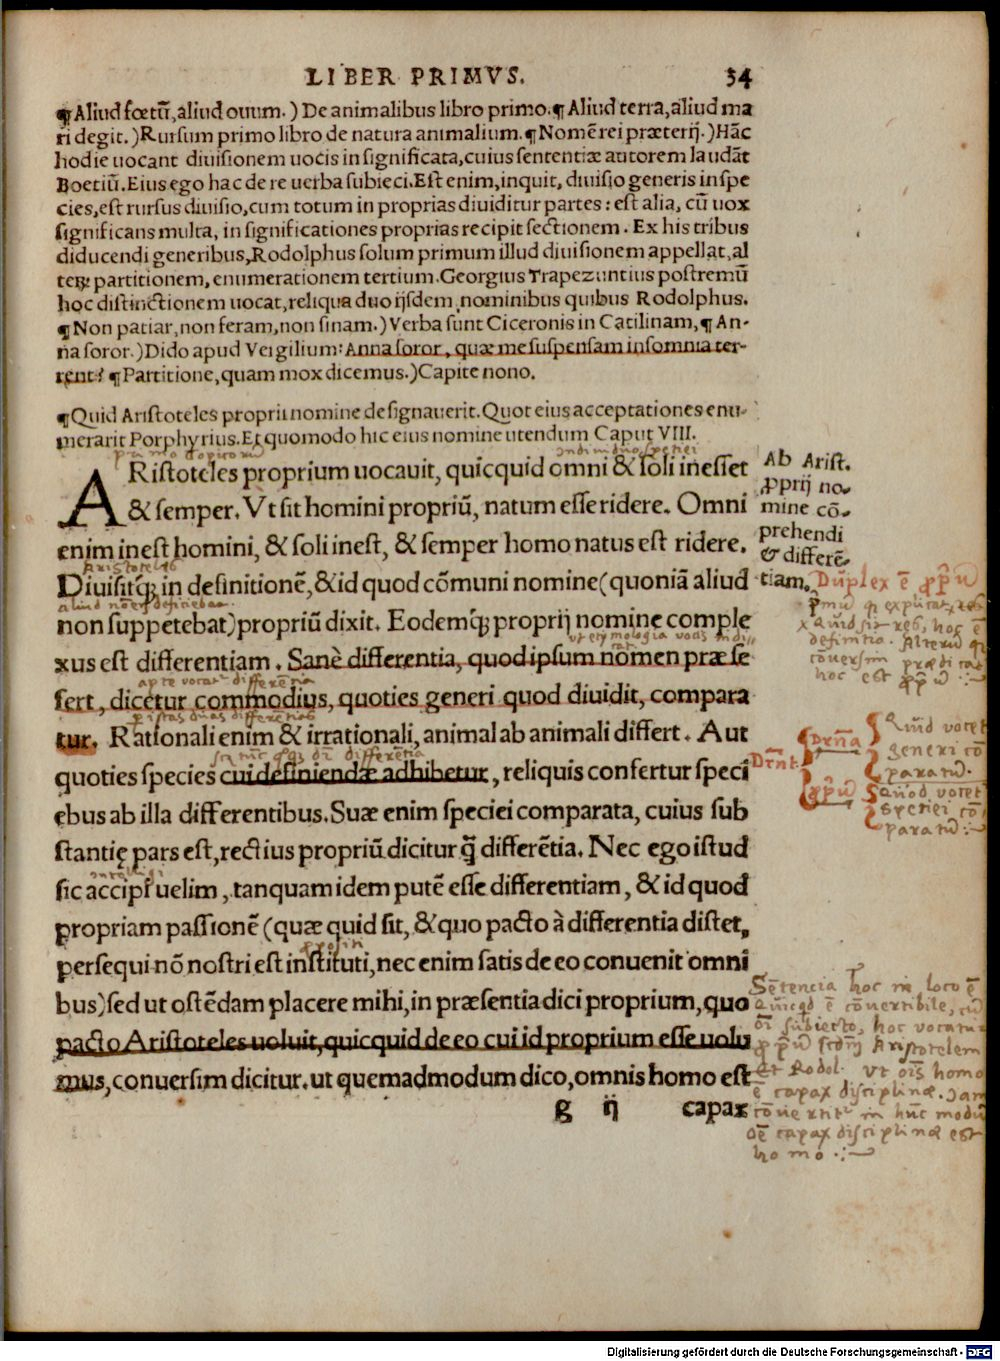 LIBER PRIMVS. 34
¶Aliud fœtū, aliud ouum.) De animalibus libro primo.¶Aliud terra, aliud ma
ri degit.)Rursum primo libro de natura animalium.¶Nomē rei præterij.)Hāc
hodie uocant diuisionem uocis in significata, cuius sententiæ autorem laudāt
Boetiū. Eius ego hac de re uerba subieci. Est enim, inquit, diuisio generis in spe
cies, est rursus diuisio, cum totum in proprias diuiditur partes: est alia, cū uox
significans multa, in significationes proprias recipit sectionem. Ex his tribus
diducendi generibus, Rodolphus solum primum illud diuisionem appellat, al
terꝫ partitionem, enumerationem tertium. Georgius Trapezuntius postremū
hoc distinctionem uocat, reliqua duo ijsdem nominibus quibus Rodolphus.
¶Non patiar, non feram, non sinam.) Verba sunt Ciceronis in Catilinam, ¶An-
na soror.) Dido apud Vergilium: Anna soror, quæ me suspensam insomnia ter-
rent? ¶Partitione, quam mox dicemus.) Capite nono.
¶Quid Aristoteles proprii nomine designauerit. Quot eius acceptationes enu-
merarit Porphyrius. Et quomodo hic eius nomine utendum Caput VIII.
primo topicorū indiuiduo speciei
ARistoteles proprium uocauit, quicquid omni & soli inesset
& semper. Vt sit homini propriū, natum esse ridere. Omni
enim inest homini, & soli inest, & semper homo natus est ridere.
Aristoteles
Diuisitꝗ; in definitionē, & id quod cōmuni nomine (quoniā aliud
aliud nomē deficiebat
non suppetebat) propriū dixit. Eodemꝗ; proprij nomine comple
ut etymologia vocis indi
cat
xus est differentiam. Sanè differentia, quod ipsum nomen præse
apte vocatur differentia
fert, dicetur commodius, quoties generi quod diuidit, compara
istas duas differentias
tur. Rationali enim & irrationali, animal ab animali differt. Aut
differentia
quoties species cui definiendæ adhibetur, reliquis confertur speci
ebus ab illa differentibus. Suæ enim speciei comparata, cuius sub
stantię pars est, rectius propriū dicitur q̄ differētia. Nec ego istud
intelligi
sic accipi uelim, tanquam idem putē esse differentiam, & id quod
propriam passionē (quæ quid sit, & quo pacto à differentia distet,
propositi
persequi nō nostri est instituti, nec enim satis de eo conuenit omni
bus) sed ut ostēdam placere mihi, in præsentia dici proprium, quo
pacto Aristoteles uoluit, quicquid de eo cui id proprium esse uolu
mus, conuersim dicitur. ut quemadmodum dico, omnis homo est
g ij capax
Ab Arist.
ꝓprij no-
mine cō-
prehendi
& differē-
tiam.
Duplex ē ꝓpriū
primū explicat
Quid sit res, hoc ē
definitio. Alterū
cōuersim prædicat
hoc est ꝓpriū
Drñt
Drña
Quid vocet
generi cō
paratū.
ꝓpriū
Quod vocet
speciei cō
paratū
Sētencia hoc in loco ē
Quicqd ē cōuertibile, cū
subiecto, hoc vocatur
ꝓpriū scdm̄ Aristotelem
et Rodol. Vt ois homo
ē capax disciplinæ. Iam
cōuertitr in hūc modū
oē capax disciplinæ est
homo
Digitalisierung gefördert durch die Deutsche Forschungsgemeinschaft - DFG